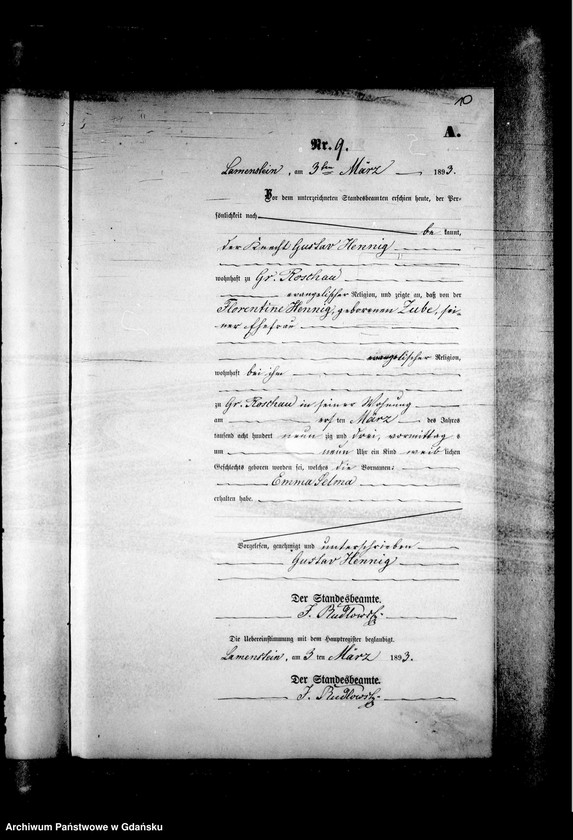 10
A.
Nr. 9.
Lamenstein, am 3ten März 1893.
Vor dem unterzeichneten Standesbeamten erschien heute, der Per-
sönlichkeit nach
be kannt,
der Knecht Gustav Hennig
wohnhaft zu Gr. Roschau
evangelischer Religion, und zeigte an, daß von der
Florentine Hennig, geborenen Zube, sei-
ner Ehefrau
evangelischer Religion,
wohnhaft bei ihm
zu Gr. Roschau in seiner Wohnung
am ersten März des Jahres
tausend acht hundert neun zig und drei, vormittag s
um neun Uhr ein Kind weib lichen
Geschlechts geboren worden sei, welches die Vornamen:
Emma Selma
erhalten habe.
Vorgelesen, genehmigt und unterschrieben
Gustav Hennig
Der Standesbeamte.
J.
Die Uebereinstimmung mit dem Hauptregister beglaubigt.
Lamenstein, am 3 ten März 1893.
Der Standesbeamte.
J.
Archiwum Państwowe w Gdańsku